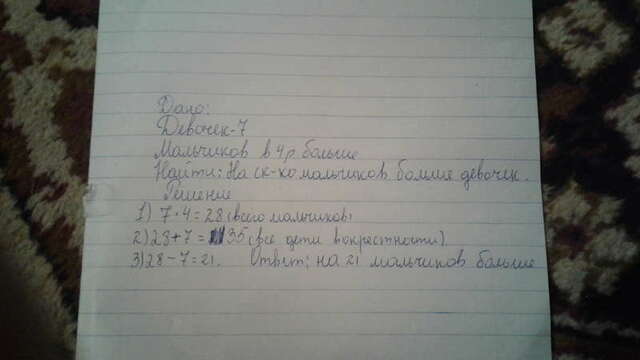 Дано:
Девочек-7
Мальчиков в 4 р. больше
Найти: На ск-ко мальчиков больше девочек.
Решение
1) 7·4=28 (всего мальчиков)
2) 28+7= 35 (все дети вокрестности).
3) 28-7=21. Ответ: на 21 мальчиков больше